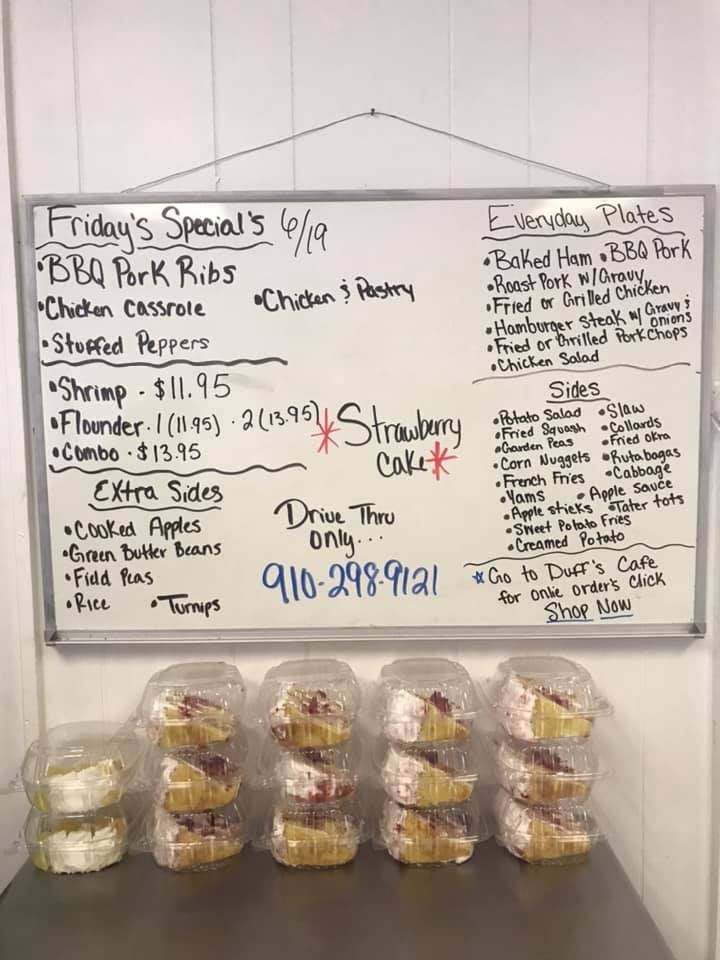 Friday's Special's 6/19
•BBQ Pork Ribs
•Chicken Cassrole •Chicken & Pastry
•Stuffed Peppers
•Shrimp - $11.95
•Flounder - 1 (11.95) - 2 (13.95)
•Combo - $13.95
*Strawberry
Cake*
Extra Sides
•Cooked Apples
•Green Butter Beans
•Field Peas
•Rice •Turnips
Drive Thru
only...
910-298-9121
Everyday Plates
•Baked Ham •BBQ Pork
•Roast Pork W/Gravy
•Fried or Grilled Chicken
•Hamburger Steak w/ Gravy &
onions
•Fried or Grilled PorkChops
•Chicken Salad
Sides
•Potato Salad •Slaw
•Fried Squash •Collards
•Garden Peas •Fried Okra
•Corn Nuggets •Rutabagas
•French Fries •Cabbage
•Yams •Apple Sauce
•Apple sticks •Tater tots
•Sweet Potato Fries
•Creamed Potato
*Go to Duff's Cafe
for onlie order's click
Shop Now